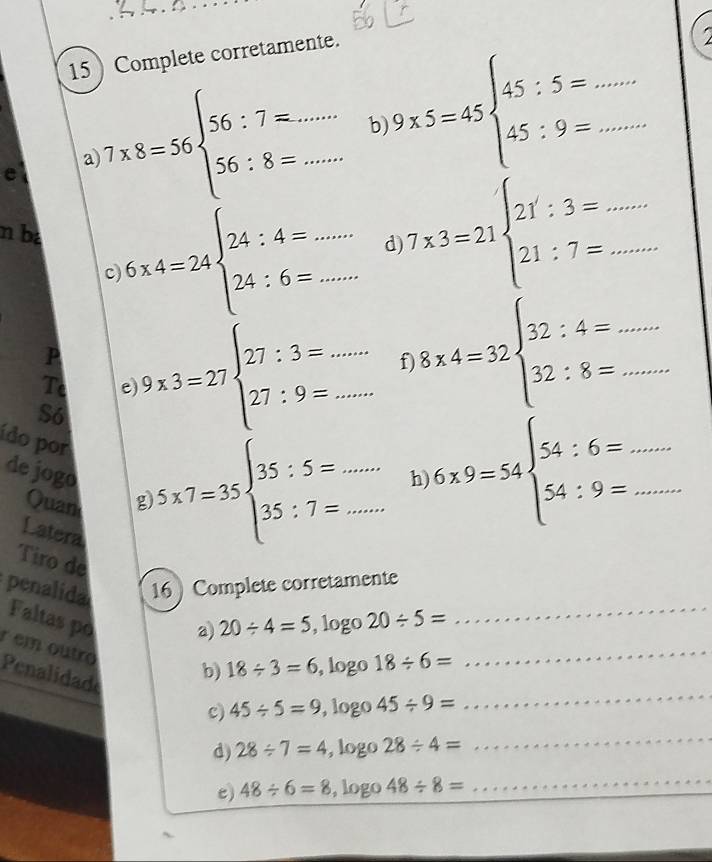 56
15) Complete corretamente.
a) 7 x 8 = 56 { 56 : 7 = .......
56 : 8 = .......
b) 9 x 5 = 45 { 45 : 5 = .......
45 : 9 = ........
c) 6 x 4 = 24 { 24 : 4 = .......
24 : 6 = .......
d) 7 x 3 = 21 { 21 : 3 = .......
21 : 7 = ........
e) 9 x 3 = 27 { 27 : 3 = .......
27 : 9 = .......
f) 8 x 4 = 32 { 32 : 4 = .......
32 : 8 = ........
g) 5 x 7 = 35 { 35 : 5 = .......
35 : 7 = .......
h) 6 x 9 = 54 { 54 : 6 = .......
54 : 9 = ........
16) Complete corretamente
a) 20 ÷ 4 = 5, logo 20 ÷ 5 = ........................
b) 18 ÷ 3 = 6, logo 18 ÷ 6 = ........................
c) 45 ÷ 5 = 9, logo 45 ÷ 9 = ........................
d) 28 ÷ 7 = 4, logo 28 ÷ 4 = ........................
e) 48 ÷ 6 = 8, logo 48 ÷ 8 = ........................
n ba
P
Te
Só
ido por
de jogo
Quan
Latera
Tiro de
penalida
Faltas po
r em outro
Penalidade